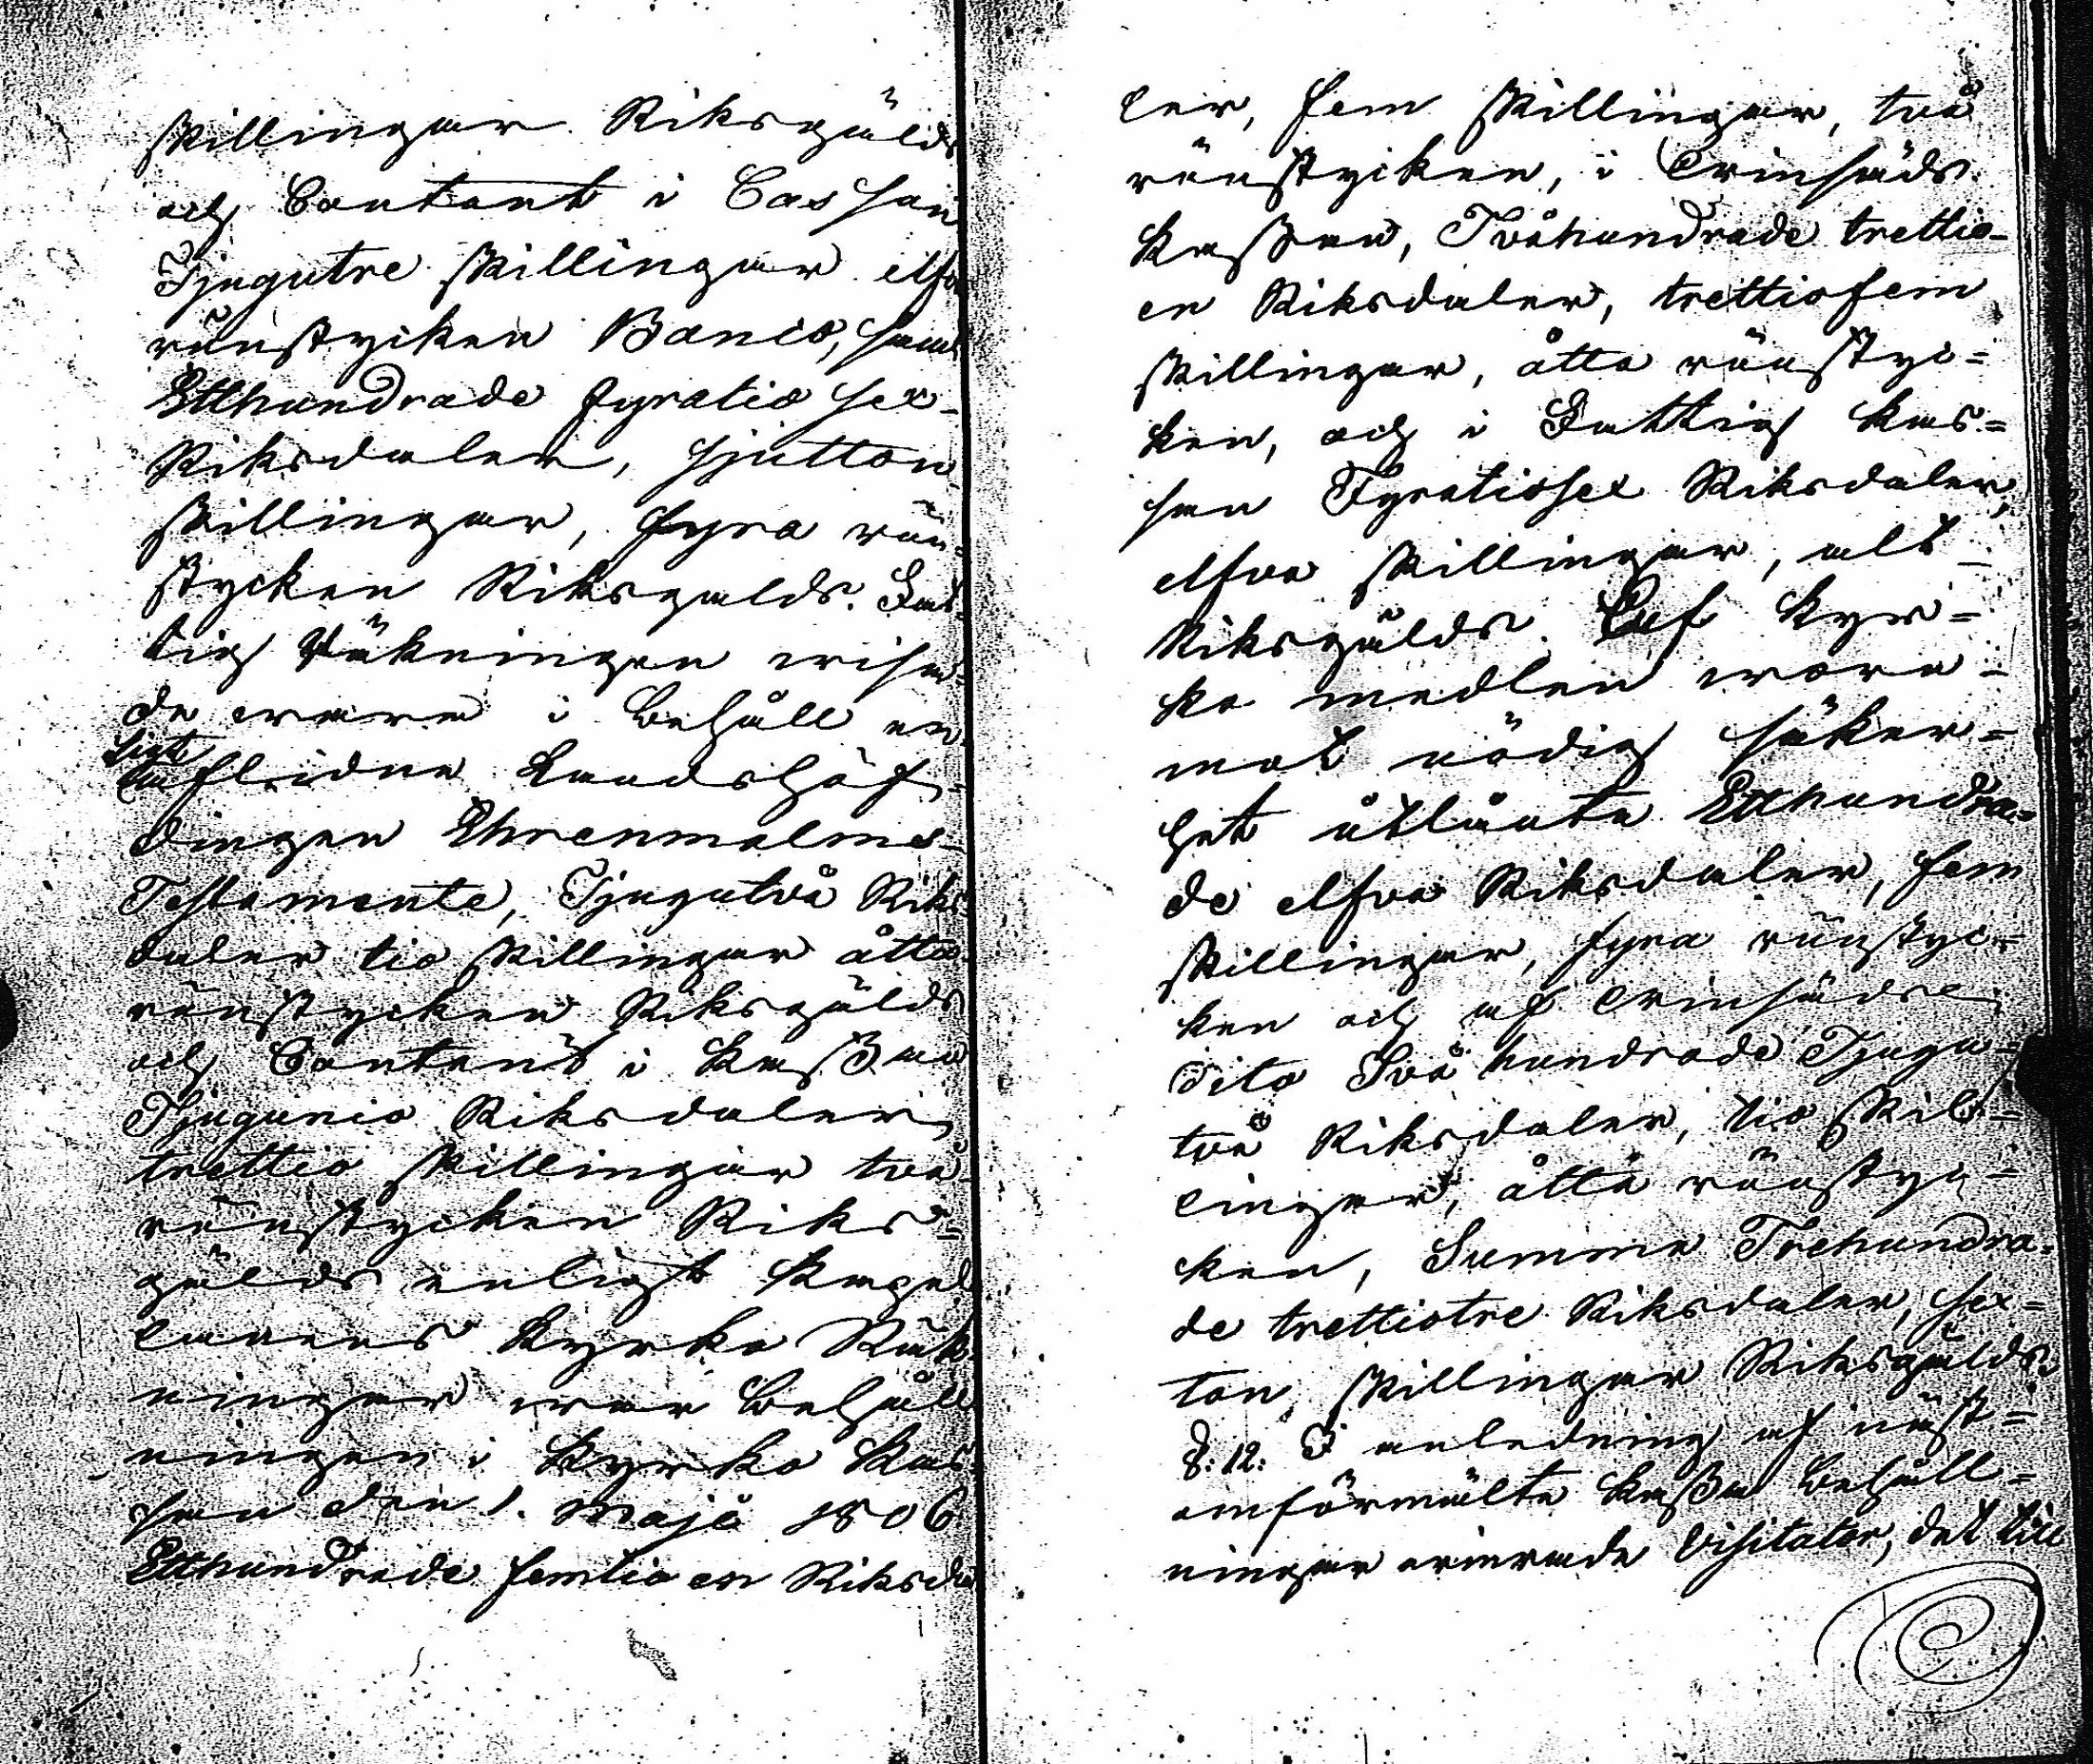 skillingar Riksgälds
och Contant i Cassan
Tjugutre skillingar elfva
rünstycken Banco, samt
Etthundrade fyratio sex
Riksdaler, sjutton
skillingar, fyra rün-
stycken Riksgälds. Fat-
tig Räkningen wisa-
de wara i behåll en-
ligt
aflidne Landshöf-
dingen Ehrenmalms
Testamente, Tjugutvå Riks-
daler tio skillingar åtta
rünstycken Riksgälds
och Contant i Kassan
Tjugunio Riksdaler
trettio skillingar två
rünstycken Riks-
gälds enligt Kapel-
lanens Kyrko Räk-
ningar war behåll-
ningen i Kyrko Kas-
san den 1. Maji 1806
Etthundrade femtio en Riksda-
ler, fem skillingar, två
rünstycken, i Crinsäds
Kassan, Tvåhundrade trettio-
en Riksdaler, trettiofem
skillingar, åtta rünstyc-
ken, och i Fattig Kas-
san Fyratiosex Riksdaler,
elfva skillingar, alt
Riksgälds. Af Kyr-
ko medlen woro
mot nödig säker-
het utlånte Etthundra-
de elfva Riksdaler, fem
skillingar, fyra rünstyc-
ken och af Crinsäds
dito Två hundrade Tjugu-
två Riksdaler, tio skil-
lingar, åtta rünstyc-
ken, Summa Trehundra-
de trettiotre Riksdaler, sex-
ton skillingar Riksgälds.
§. 12. I anledning af näst-
omförmälte Kassa behåll-
ningar arinrade Visitator, det till